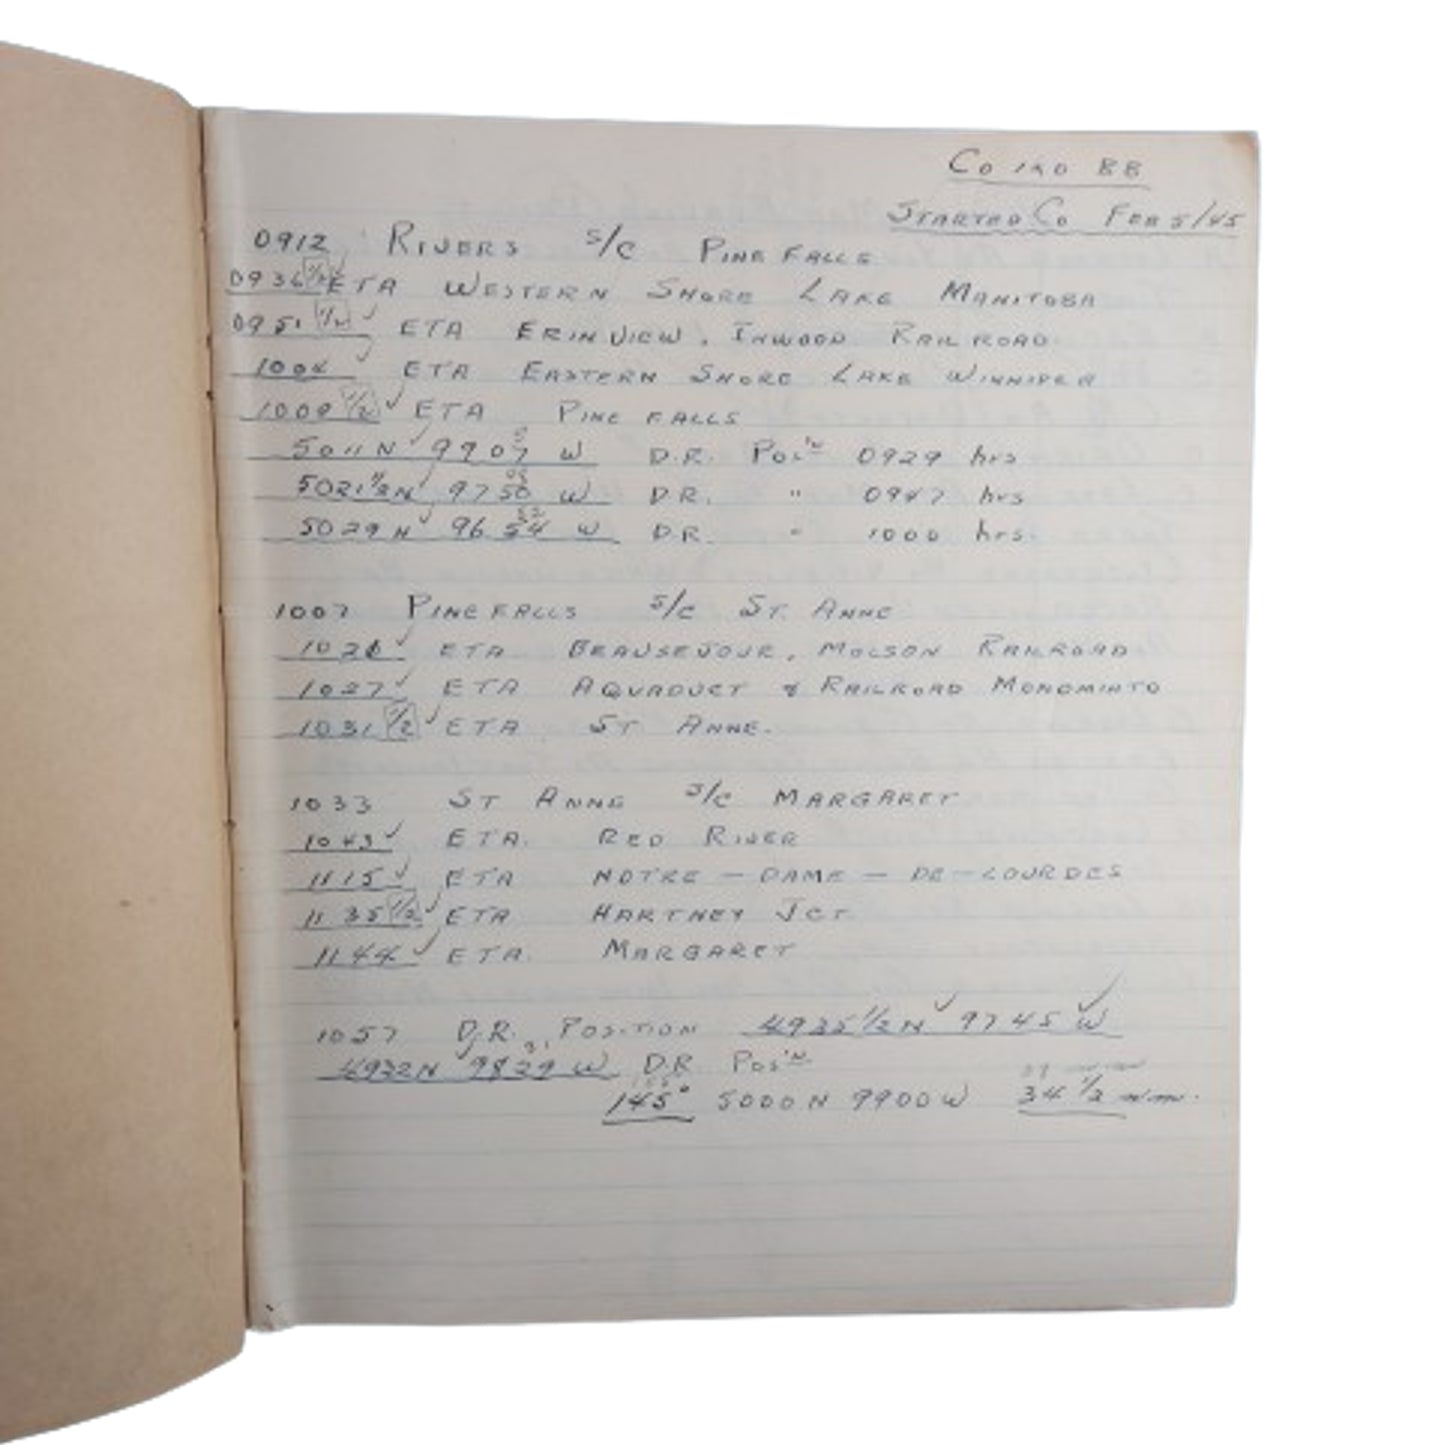 Co 190 BB
STARTED Co FEB 5/45
0912 RIVERS S/C PINE FALLS
0936 1/2 ETA WESTERN SHORE LAKE MANITOBA
0951 1/2 ETA ERINVIEW, INWOOD RAILROAD
1004 ETA EASTERN SHORE LAKE WINNIPEG
1009 1/2 ETA PINE FALLS
5011 N 9907 W D.R. Pos'n 0929 hrs
5021 1/2 N 9750 W D.R. " 0947 hrs
5029 N 96 54 W D.R. " 1000 hrs.
1007 PINE FALLS S/C ST. ANNE
1021 ETA BEAUSEJOUR, MOLSON RAILROAD
1027 ETA AQUADUCT & RAILROAD MONOMINTO
1031 1/2 ETA ST ANNE.
1033 ST ANNE S/C MARGARET
1043 ETA. RED RIVER
1115 ETA NOTRE - DAME - DE - LOURDES
1135 1/2 ETA HARTNEY JCT
1144 ETA. MARGARET
1057 D.R. POSITION 4935 1/2 N 9745 W
4932N 9829 W D.R Pos'n
145° 5000 N 9900 W 34 1/2 n.m.